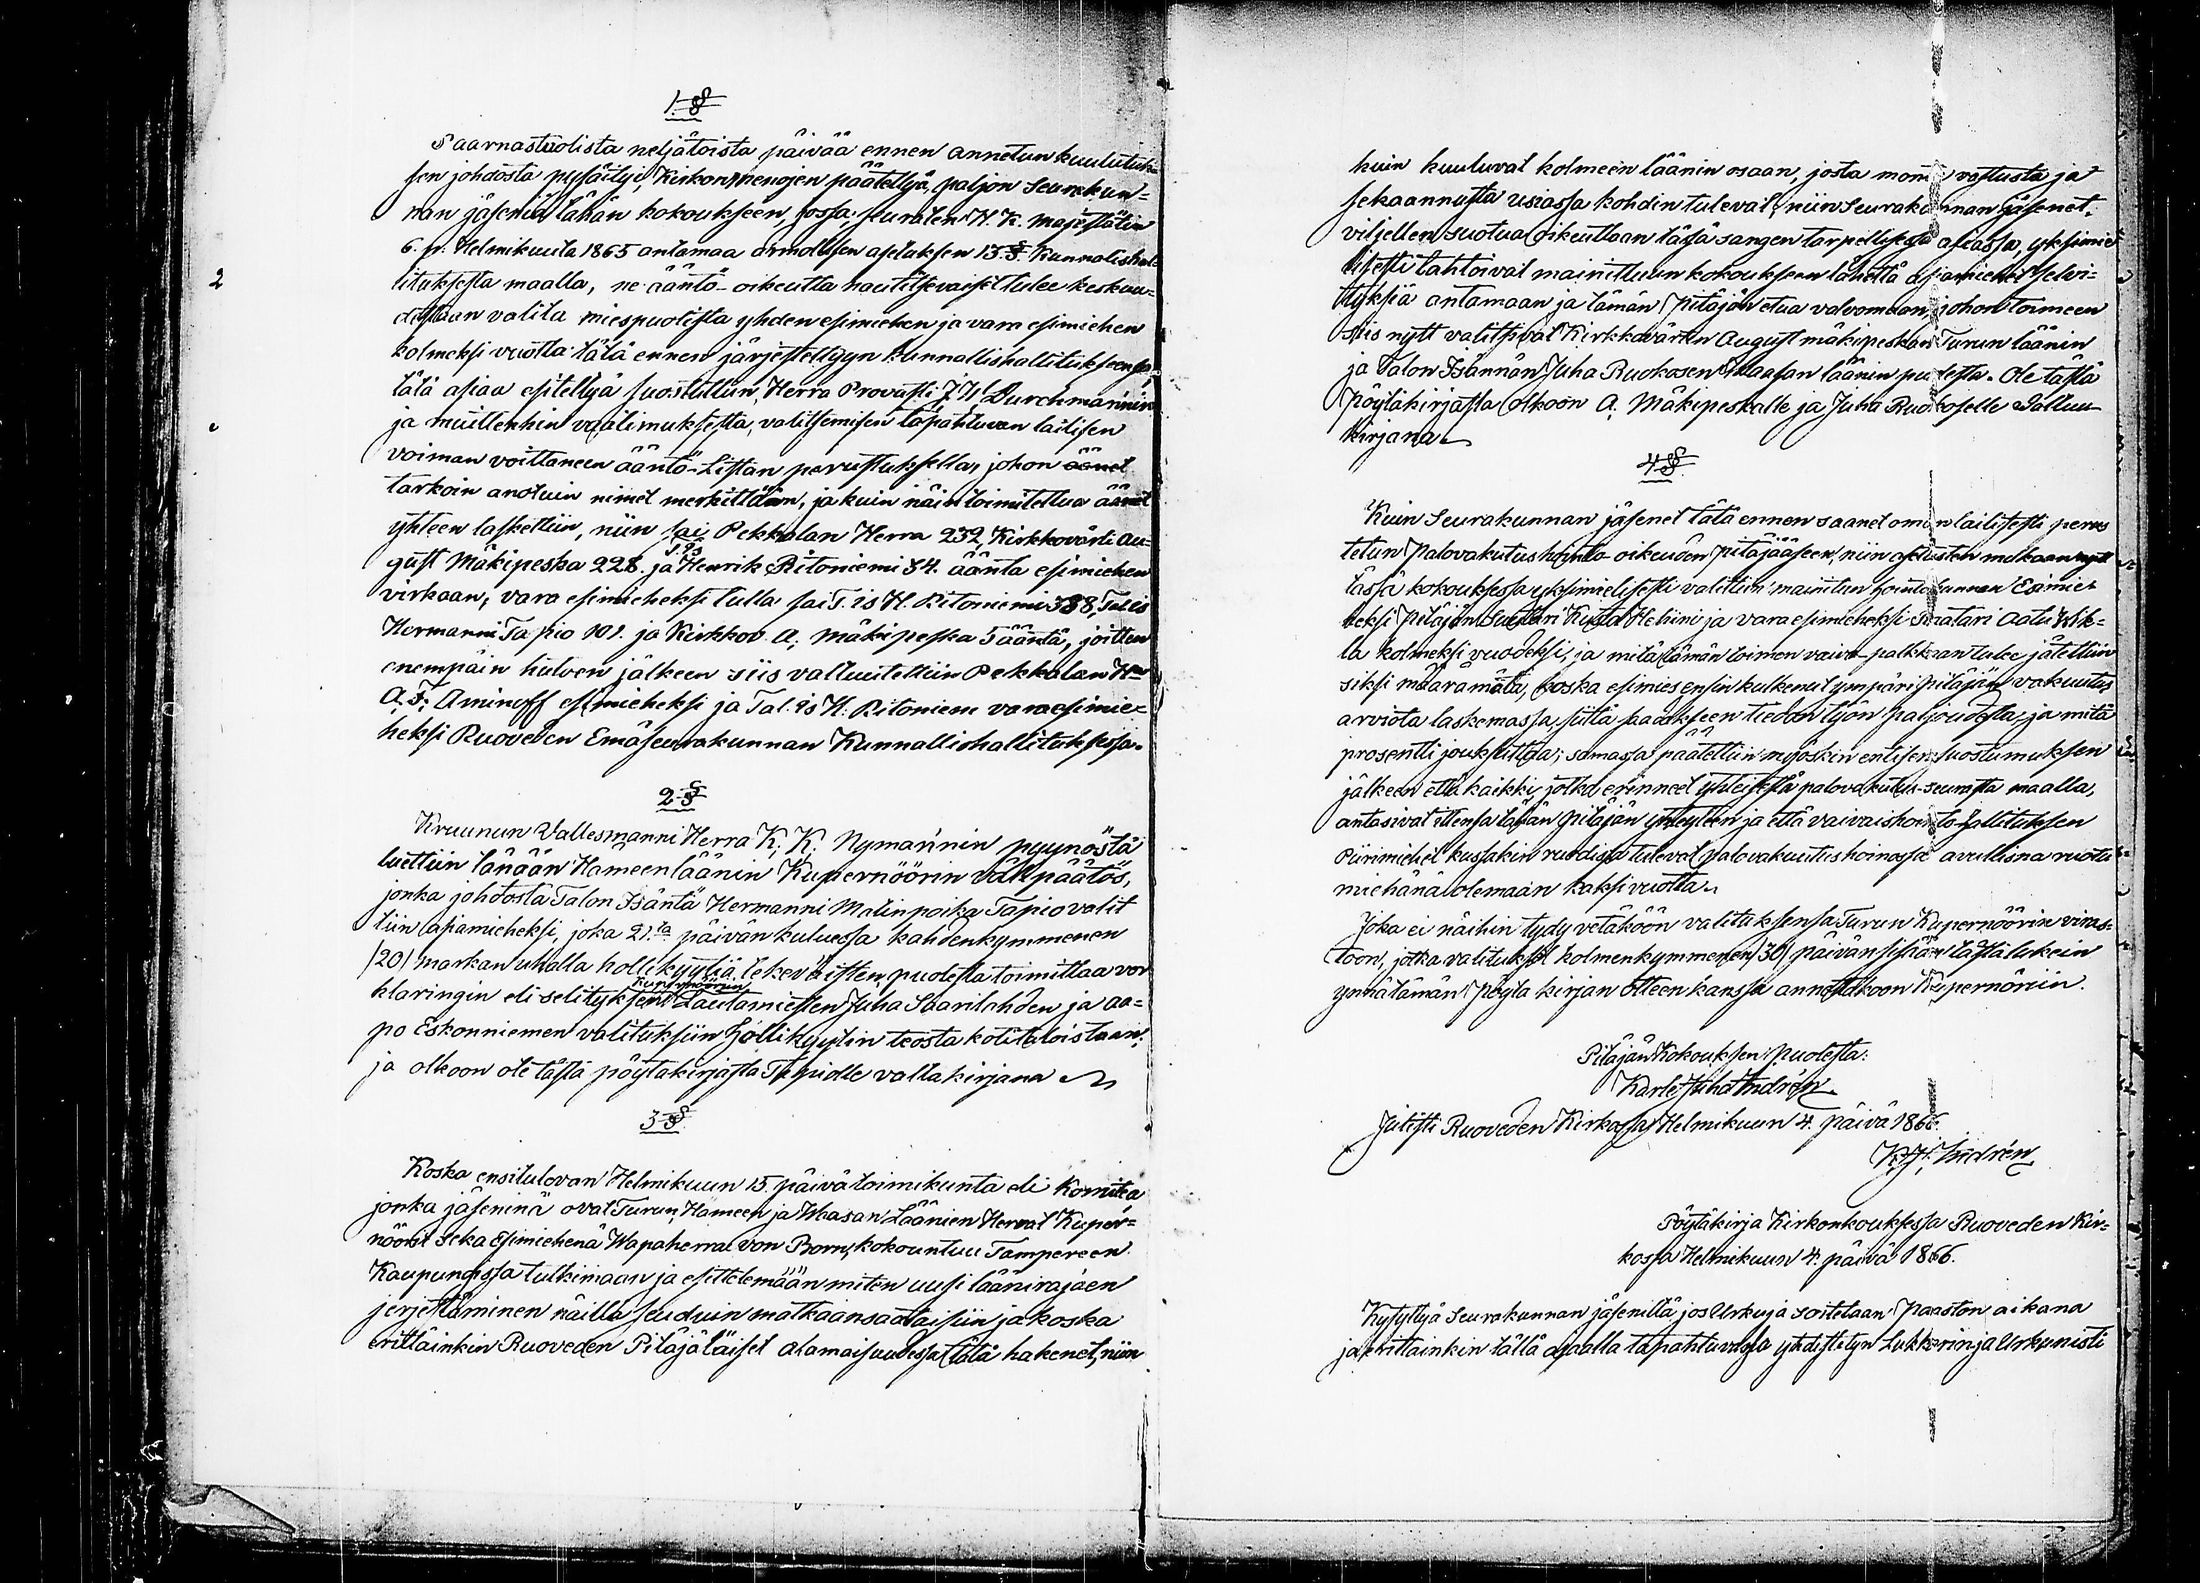 1 §
Saarnastuolista neljätoista päivää ennen annetun kuulutuk-
sen johdosta pysäityi, Kirkon menojen päätettyä, paljon Seurakun-
nan jäseniä tähän kokoukseen, jossa, seuraten H. K. Majestätin
6. p. Helmikuuta 1865 antamaa armollisen asetuksen 13 §. Kunnalishal-
lituksesta maalla, ne ääntö-oikeutta nautitsevaiset tulee keskuu-
destaan valita miespuolista yhden esimiehen ja vara esimiehen
kolmeksi vuotta tätä ennen järjestettyyn kunnallishallitukseensa,
tätä asiaa esitellyä suostuttun, Herra Provasti J. W. Durchmannin
ja muittenkin vaalimuksesta, valitsemisen tapahtuvan lailisen
voiman voittaneen ääntö-Listan perustuksella, johon äänet
tarkoin anotuin nimet merkittään, ja kuin näin toimitettua äänet
yhteen laskettiin, niin sai Pekkalan Herra 232, Kirkkovärti Au-
gust Mäkipeska 228. ja Henrik Ritoniemi 34. ääntä esimiehen
virkaan, vara esimieheksi tulla sai T. is H. Ritoniemi 388, Tal is
Hermanni Tapio 101. ja Kirkkov. A. Mäkipeska 5 ääntä, joitten
enempäin huuvon jälkeen siis valtuutettiin Pekkalan Hra
A. F. Aminoff esimieheksi ja Tal. is H. Ritoniem varaesimie-
heksi Ruoveden Emäseurakunnan Kunnallishallituksessa.
2 §
Kruunun Vallesmanni Herra K. K. Nymannin pyynöstä
luettiin tänään Hämeenläänin Kupernöörin välipäätös,
jonka johdosta Talon Isäntä Hermanni Matinpoika Tapio valit
tiin asiamieheksi, joka 21.ta päivän kuluessa kahdenkymmenen
/20/ markan uhalla hollikyytiä tekeväisten, puolesta toimittaa vor
klaringin eli selityksen Kupernöörin Lautamiesten Juha Saarilahden ja Aa-
po Eskonniemen valituksiin Hollikyytin teosta kotitaloistaan;
ja olkoon ote tästä pöytäkirjasta Tapiolle valtakirjana
3 §
Koska ensitulevan Helmikuun 15. päivä toimikunta eli Komitea
jonka jäseninä ovat Turun, Hämeen ja Waasan Läänien Herrat Kuper-
nöörit seka Esimiehenä Wapaherra von Born, kokountuu Tampereen
Kaupungissa tutkimaan ja esittelemään miten uusi läänirajaen
jerjestäminen näillä seuduin matkaansaataisiin ja koska
erittäinkin Ruoveden Pitäjäläiset alamaisuudessa tätä hakenet, niin
kuin kuuluvat kolmeen läänin osaan, josta moni vastusta ja
sekaannusta usiassa kohdin tulevat, niin Seurakunnan jäsenet,
viljellen suotua oikeuttaan tässä sangen tarpellisessa asiassa, yksimie-
lisesti tahtoivat mainittuun kokoukseen lähettä asiamiehet selvi-
tyksiä antamaan ja tämän Pitäjän etua valvomaan, johon toimeen
siis nytt valitsivat Kirkkovärtin August Mäkipeskan Turun läänin
ja Talon Isännän Juha Ruokosen Waasan läänin puolesta. Ote tästä
Pöytäkirjasta olkoon A. Mäkipeskalle ja Juha Ruokoselle Valtuu-
kirjana
4 §
Kuin Seurakunnan jäsenet tätä ennen saanet oman lailisesti perus
tetun Palovakutus hointo oikeuden pitäjääseen, niin asetusten mukaan nytt
tässä kokouksessa yksimielisesti valittiin mainitun hointokunnan Esimie-
heksi Pitäjän Suutari Kusta Helmi ja varaesimieheksi Suutari Aatu Wik-
la kolmeksi vuodeksi, ja mitä tämän toimen vaiva-palkkaan tulee jätettiin
siksi määrämätä, koska esimies ensin kulkenut ympäri pitäjän vakuutus
arviota laskemassa, siitä saadakseen tiedon työn paljoudesta, ja mitä
prosentti juoksuttaa; samassa päätettiin myöskin entisen suostumuksen
jälkeen että kaikki, jotka erinneet yhteisestä palovakutus-seurasta maalla,
antasivat ittensä tähän pitäjän yhteyteen ja että vaivaishointo hallituksen
Piirimiehet kussakin ruodissa tulevat palovakuutushoinossa avullisna ruotu
miehänä olemaan kaksi vuotta.
Joka ei näihin tydy vetäköön valituksensa Turun Kupernöörin viras-
toon, jotka valitukset kolmenkymmenen /30/ päivän sisään tästä lukein
ynnä tämän Pöyta kirjan otteen kanssa annettakoon Kupernöriin.
Pitäjän Kokouksen puolesta:
Karle Juha Indrén
Julisti Ruoveden Kirkossa Helmikuun 4. päivä 1866.
K. J. Indrén
Pöytäkirja Kirkonkouksessa Ruoveden Kir-
kossa Helmikuun 4. päivä 1866.
Kysyttyä Seurakunnan jäseniltä jos Urkuja soitetaan Paaston aikana
ja erittainkin tällä ajaalla tapahtuvassa yhdistetyn Lukkarin ja Urkunisti